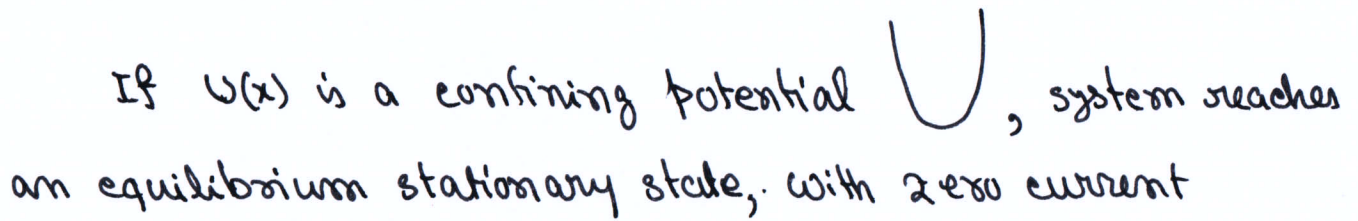 If U(x) is a confining potential, system reaches
an equilibrium stationary state, with zero current